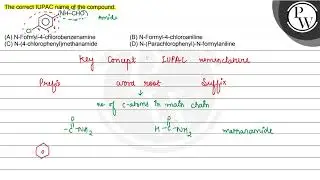 The correct IUPAC name of the compound.
NH-CHO Amide
Cl
(A) N-Formyl-4-chlorobenzenamine (B) N-Formyl-4-chloroaniline
(C) N-(4-chlorophenyl)methanamide (D) N-(Parachlorophenyl)-N-formylaniline
Key Concept : IUPAC nomenclature
Prefix word root Suffix
no of C-atoms in main chain
O O
-C-NH2 H-C-NH2 methanamide